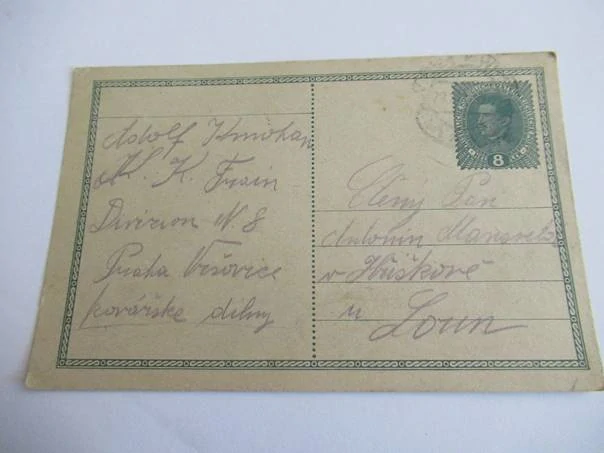 Adolf Kmohan
K. K. Train
Divizion N. 8
Praha Vršovice
kovářske dílny
8
Ctěný Pan
Antonin
v Hřiškově
u Loun